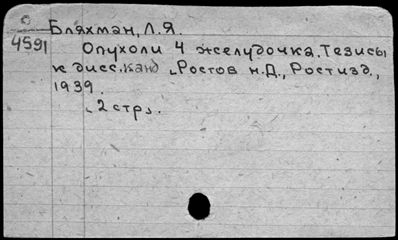 Бляхман, Л.Я.
4591
Опухоли 4 желудочка. Тезисы
к дисс. канд. Ростов н.Д., Ростизд.,
1939.
2 стр.